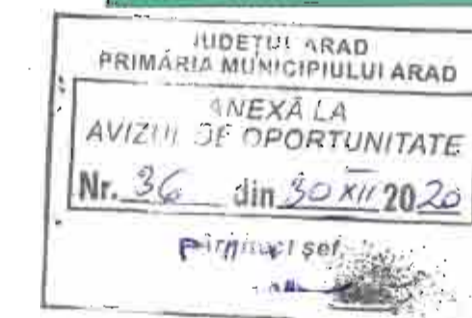 JUDEȚUL ARAD
PRIMĂRIA MUNICIPIULUI ARAD
ANEXĂ LA
AVIZUL DE OPORTUNITATE
Nr. 36 din 30 XII 2020
șef,